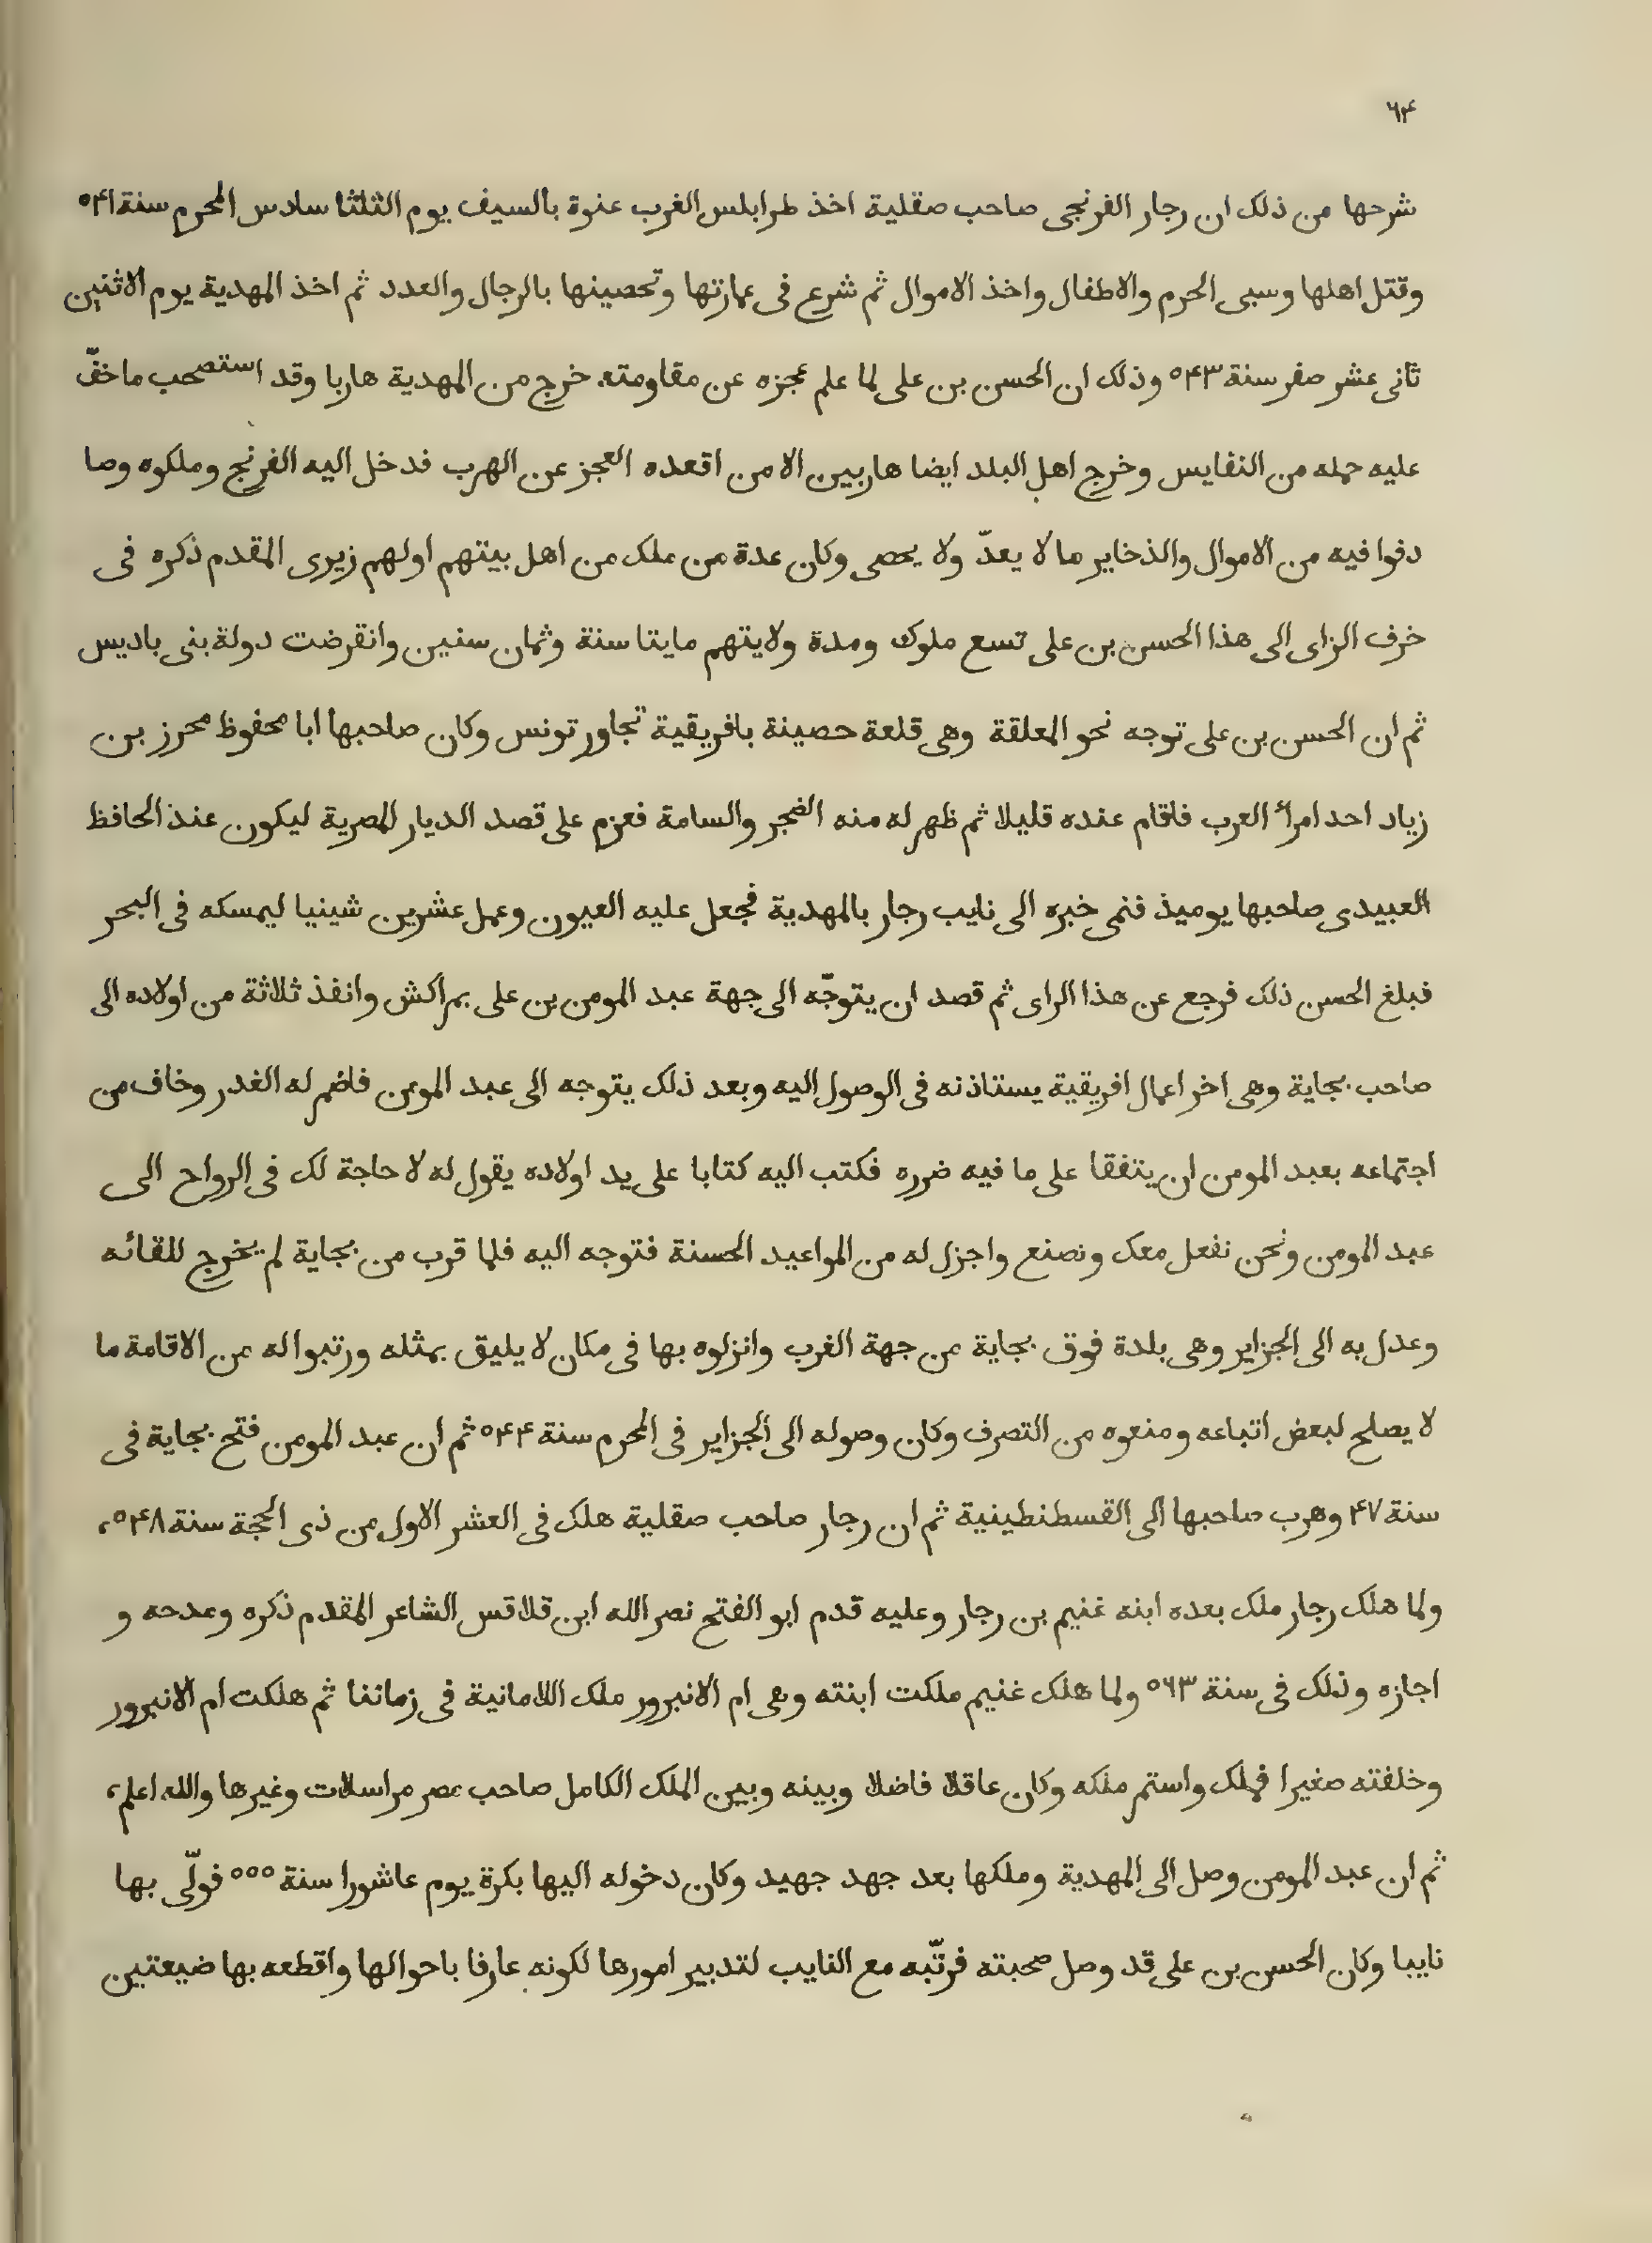 ٦٤
شرحها من ذلك ان رجار الفرنجى صاحب صقلية اخذ طرابلس الغرب عنوة بالسيف يوم الثلثا سادس المحرم سنة ٥٤١
وقتل اهلها وسبى الحرم والاطفال واخذ الاموال ثم شرع فى عمارتها وتحصينها بالرجال والعدد ثم اخذ المهدية يوم الاثنين
ثانى عشر صفر سنة ٥٤٣ وذلك ان الحسن بن على لما علم عجزه عن مقاومته خرج من المهدية هاربا وقد استصحب ما خفّ
عليه حمله من النفايس وخرج اهل البلد ايضا هاربين الا من اقعده العجز عن الهرب فدخل اليه الفرنج وملكوه وصا
دفوا فيه من الاموال والذخاير ما لا يعدّ ولا يحصى وكان عدة من ملك من اهل بيتهم اولهم زيرى المقدم ذكره فى
خرف الزاى الى هذا الحسن بن على تسع ملوك ومدة ولايتهم مايتا سنة وثمان سنين وانقرضت دولة بنى باديس
ثم ان الحسن بن على توجه نحو المعلقة وهى قلعة حصينة بافريقية تجاور تونس وكان صاحبها ابا محفوظ محرز بن
زياد احد امرأ العرب فاقام عنده قليلا ثم ظهر له منه الضجر والسامة فعزم على قصد الديار المصرية ليكون عند الحافظ
العبيدى صاحبها يوميذ فنمى خبره الى نايب رجار بالمهدية فجعل عليه العيون وعمل عشرين شينيا ليمسكه فى البحر
فبلغ الحسن ذلك فرجع عن هذا الراى ثم قصد ان يتوجّه الى جهة عبد المومن بن على بمراكش وانفذ ثلاثة من اولاده الى
صاحب بجاية وهى اخر اعمال افريقية يستاذنه فى الوصول اليه وبعد ذلك يتوجه الى عبد المومن فاضمر له الغدر وخاف من
اجتماعه بعبد المومن ان يتفقا على ما فيه ضرره فكتب اليه كتابا على يد اولاده يقول له لا حاجة لك فى الرواح الى
عبد المومن ونحن نفعل معك ونصنع واجزل له من المواعيد الحسنة فتوجه اليه فلما قرب من بجاية لم يخرج للقائه
وعدل به الى الجزاير وهى بلدة فوق بجاية من جهة الغرب وانزلوه بها فى مكان لا يليق بمثله ورتبوا له من الاقامة ما
لا يصلح لبعض اتباعه ومنعوه من التصرف وكان وصوله الى الجزاير فى المحرم سنة ٥٤٤ ثم ان عبد المومن فتح بجاية فى
سنة ٤٧ وهرب صاحبها الى القسطنطينية ثم ان رجار صاحب صقلية هلك فى العشر الاول من ذى الحجة سنة ٥٤٨،
ولما هلك رجار ملك بعده ابنه غنيم بن رجار وعليه قدم ابو الفتح نصر الله ابن قلاقس الشاعر المقدم ذكره ومدحه و
اجازه وذلك فى سنة ٥٦٣ ولما هلك غنيم ملكت ابنته وهى ام الانبرور ملك اللامانية فى زماننا ثم هلكت ام الانبرور
وخلفته صغيرا فملك واستمر ملكه وكان عاقلا فاضلا وبينه وبين الملك الكامل صاحب مصر مراسلات وغيرها والله اعلم،
ثم ان عبد المومن وصل الى المهدية وملكها بعد جهد جهيد وكان دخوله اليها بكرة يوم عاشورا سنة ٥٥٥ فولّى بها
نايبا وكان الحسن بن على قد وصل صحبته فرتّبه مع النايب لتدبير امورها لكونه عارفا باحوالها واقطعه بها ضيعتين